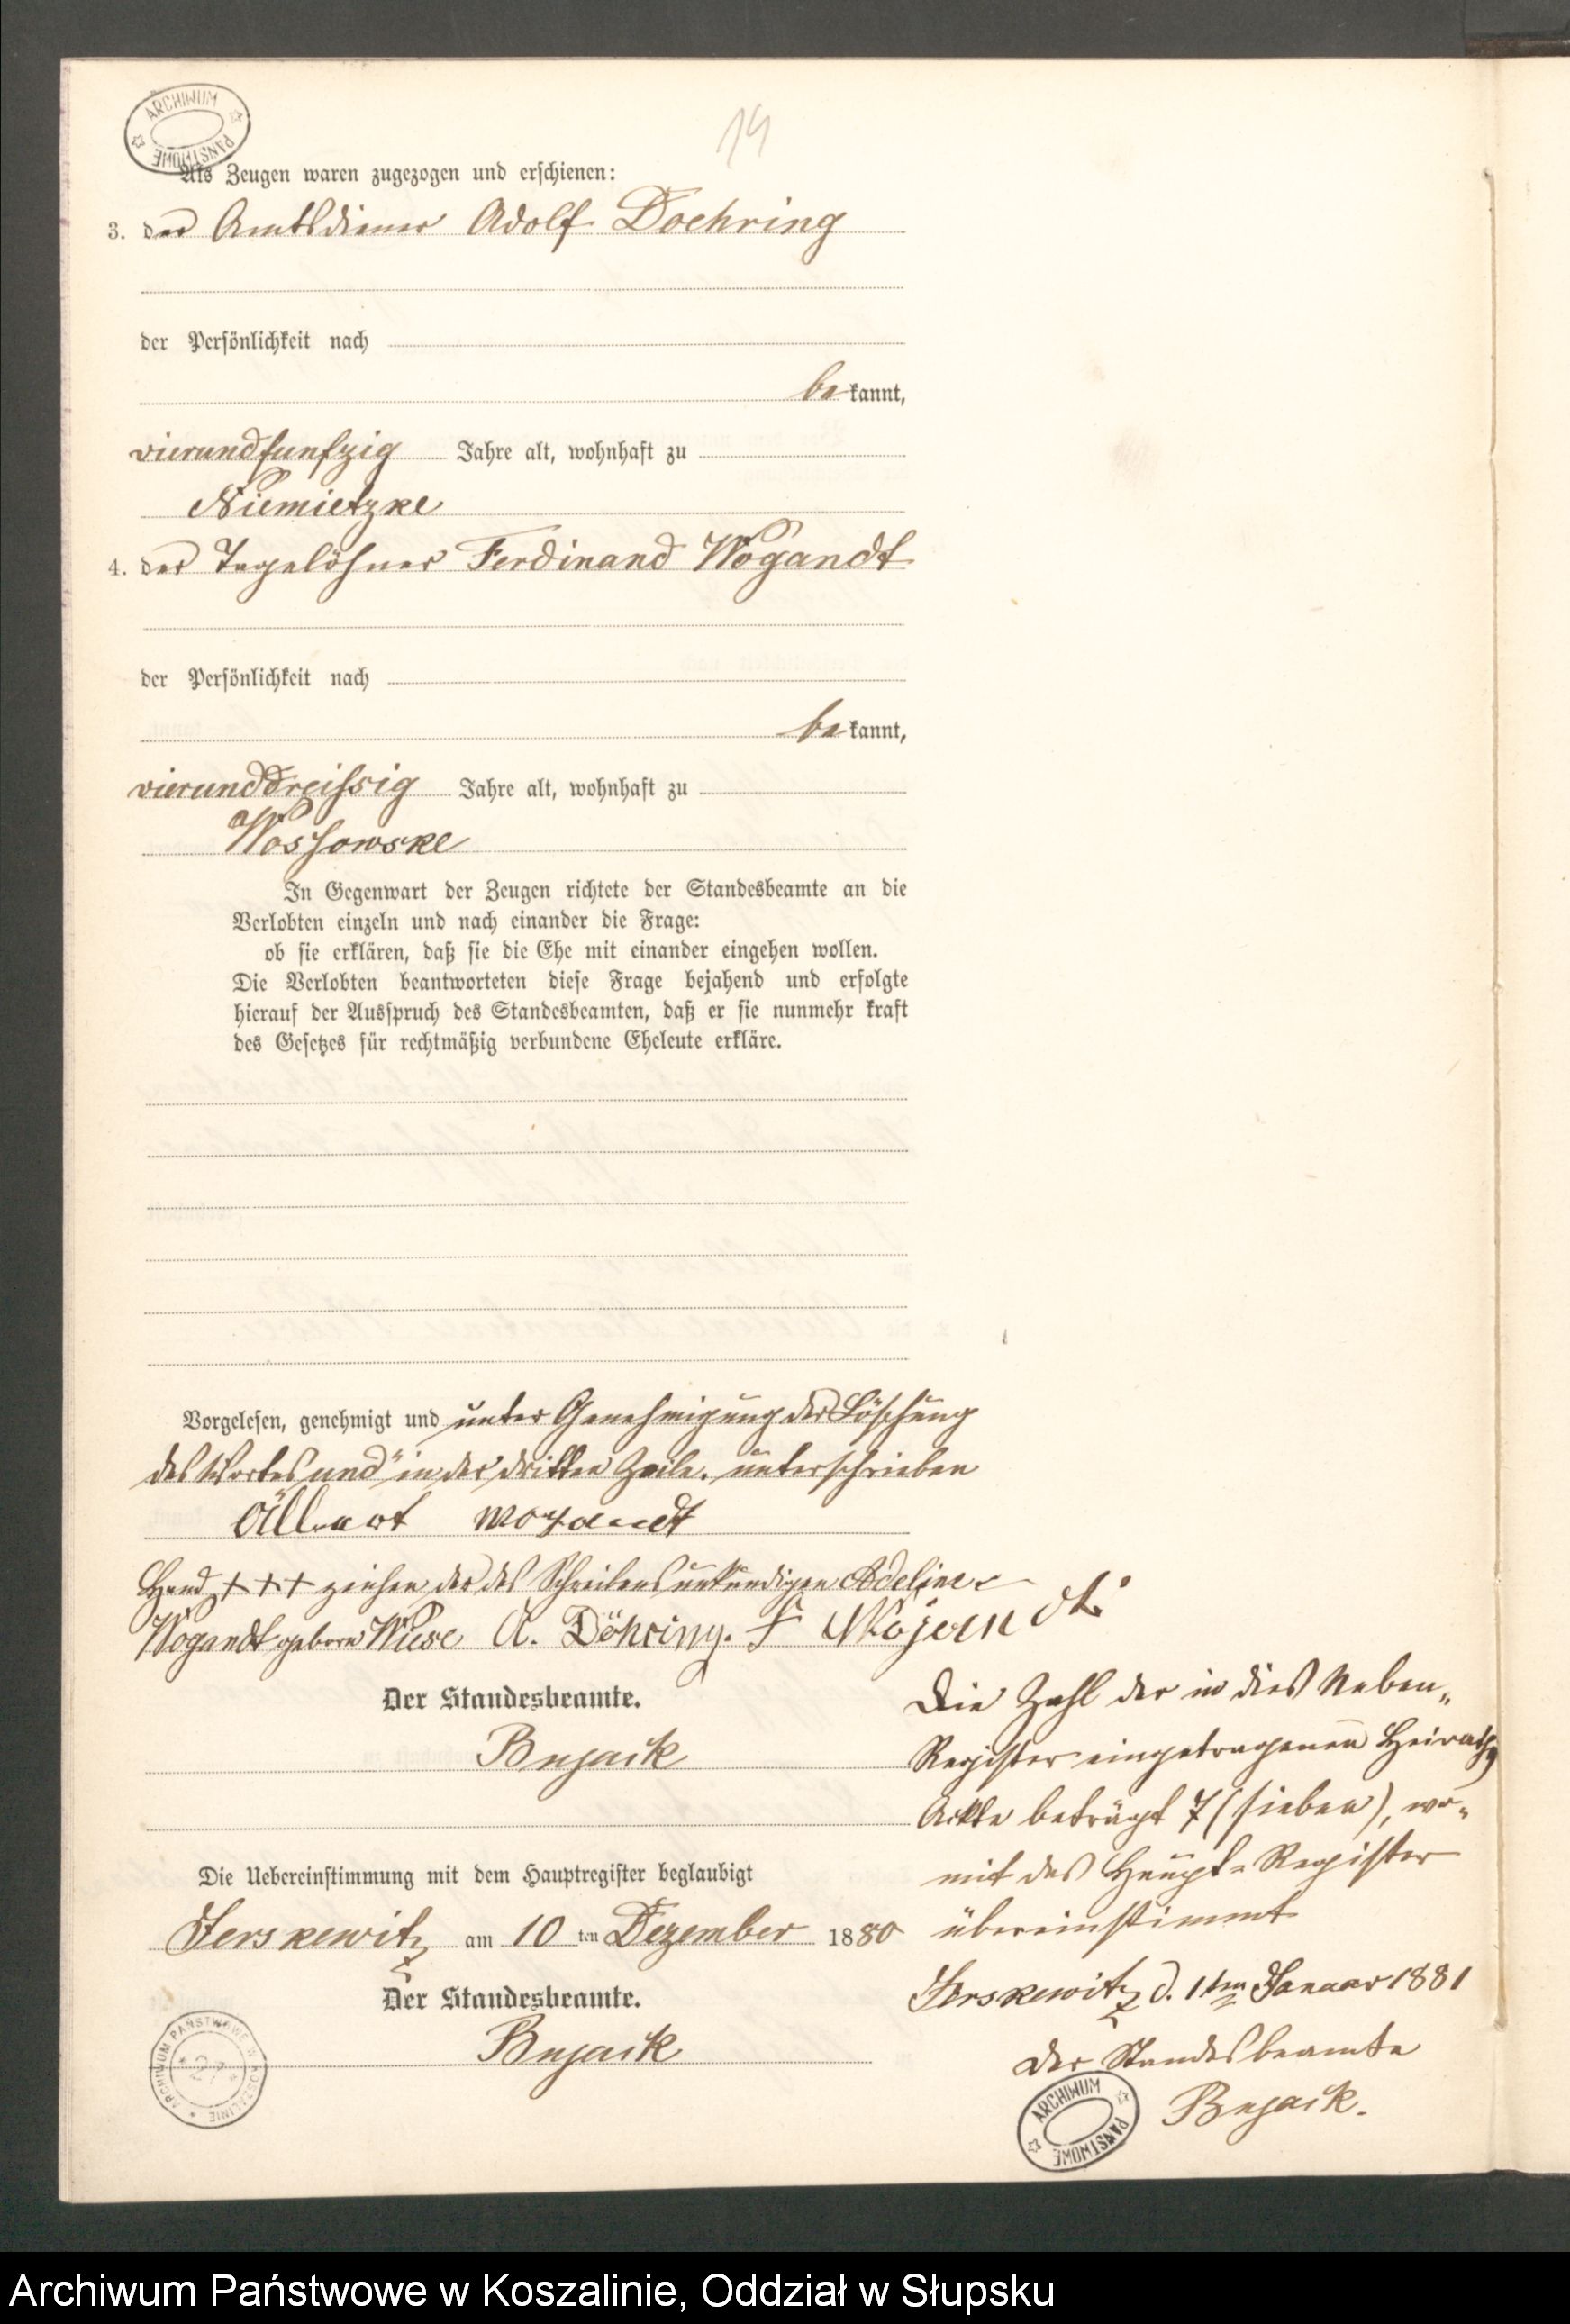 ARCHIWUM PAŃSTWOWE
14
Als Zeugen waren zugezogen und erschienen:
3. der Amtsdiener Adolf Doehring
der Persönlichkeit nach
bekannt,
vierundfunfzig Jahre alt, wohnhaft zu
Niemietzke
4. der Tagelöhner Ferdinand Wogandt
der Persönlichkeit nach
bekannt,
vierunddreissig Jahre alt, wohnhaft zu
Wossowske
In Gegenwart der Zeugen richtete der Standesbeamte an die
Verlobten einzeln und nach einander die Frage:
ob sie erklären, daß sie die Ehe mit einander eingehen wollen.
Die Verlobten beantworteten diese Frage bejahend und erfolgte
hierauf der Ausspruch des Standesbeamten, daß er sie nunmehr kraft
des Gesetzes für rechtmäßig verbundene Eheleute erkläre.
Vorgelesen, genehmigt und unter Genehmigung der Löschung
des Wortes „und" in der dritten Zeile, unterschrieben
Albert Wogandt
Hand +++ zeichen der des Schreibens unkundigen Adeline
Wogandt geborn Wiese A. Döhring. F Wogandt.
Der Standesbeamte.
Bujack
Die Uebereinstimmung mit dem Hauptregister beglaubigt
Jerskewitz am 10 ten Dezember 1880
Der Standesbeamte.
Bujack
ARCHIWUM PAŃSTWOWE W KOSZALINIE
27
Die Zahl der in dies Neben-
Register eingetragenen Heiraths
Ackte beträgt 7 (sieben), wo-
mit das Haupt-Register
übereinstimmt
Jerskewitz d. 1ten Januar 1881
Der Standesbeamte
Bujack.
ARCHIWUM PAŃSTWOWE
Archiwum Państwowe w Koszalinie, Oddział w Słupsku